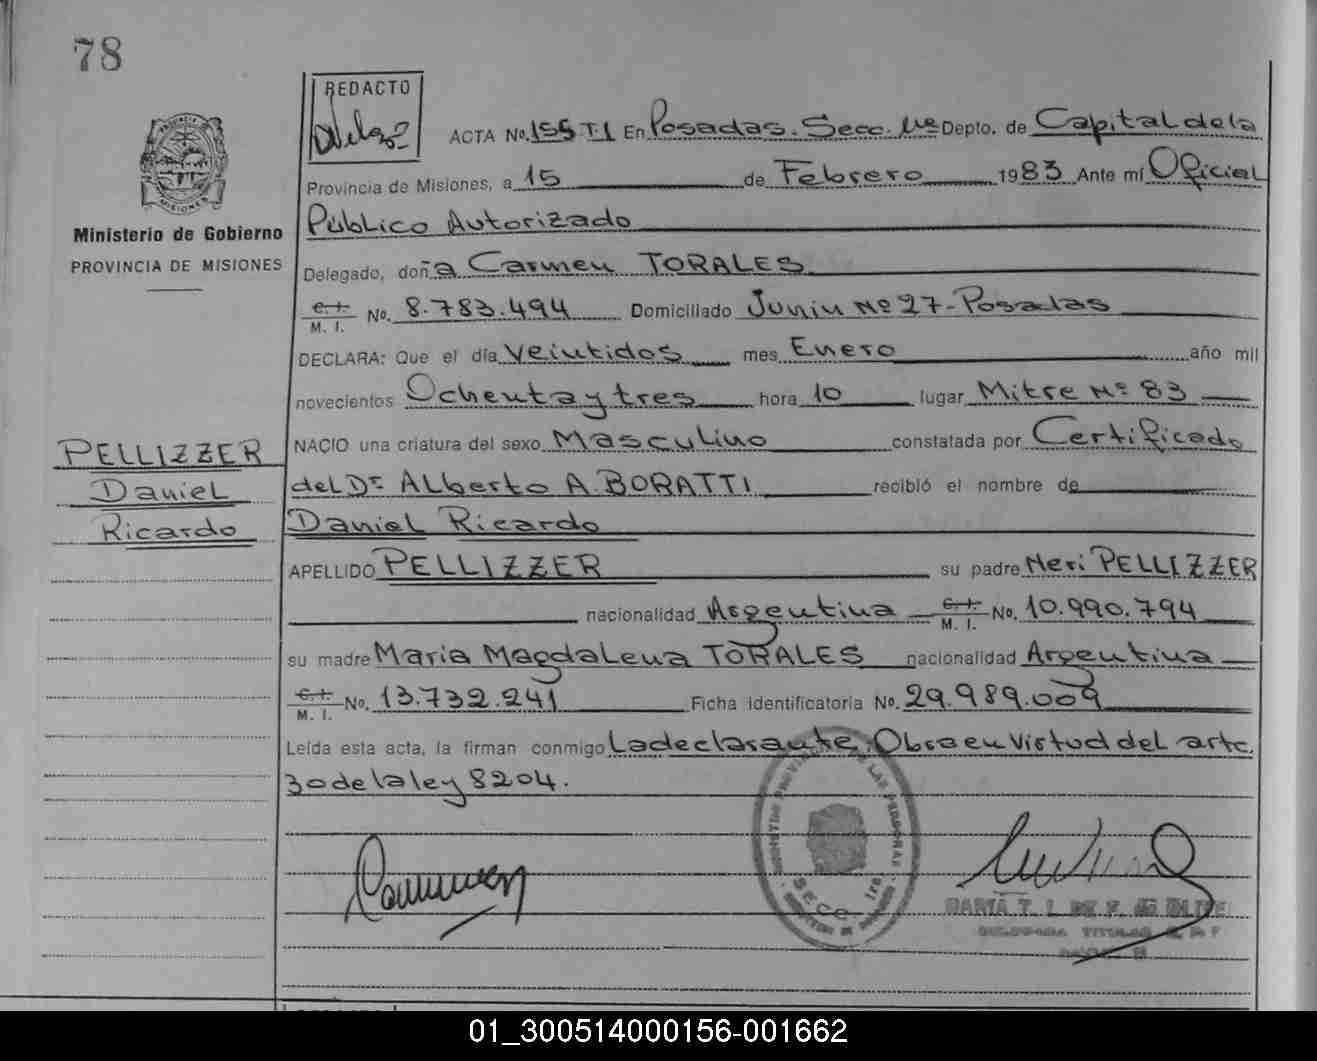 78
REDACTO
ACTA No. 155 T.I En Posadas. Secc. 1ra Depto. de Capital de la
Provincia de Misiones, a 15 de Febrero 1983 Ante mí Oficial
Público Autorizado
PROVINCIA DE
MISIONES
Ministerio de Gobierno
PROVINCIA DE MISIONES
Delegado, doña Carmen TORALES
C.I.
M. I. No. 8.783.494 Domiciliado Junin Nº 27 - Posadas
DECLARA: Que el día Veintidos mes Enero año mil
novecientos Ochenta y tres hora 10 lugar Mitre Nº 83
NACIO una criatura del sexo Masculino constatada por Certificado
del Dr ALberto A. BORATTI recibió el nombre de
Daniel Ricardo
PELLIZZER
Daniel
Ricardo
APELLIDO PELLIZZER su padre Neri PELLIZZER
nacionalidad Argentina C.I.
M. I. No. 10.990.794
su madre Maria Magdalena TORALES nacionalidad Argentina
C.I.
M. I. No. 13.732.241 Ficha identificatoria No. 29.989.009
Leída esta acta, la firman conmigo La declarante. Obra en virtud del artc.
30 de la ley 8204.
Carmen
DE LAS PERSONAS
SECC. 1ra
TITULAR
01_300514000156-001662